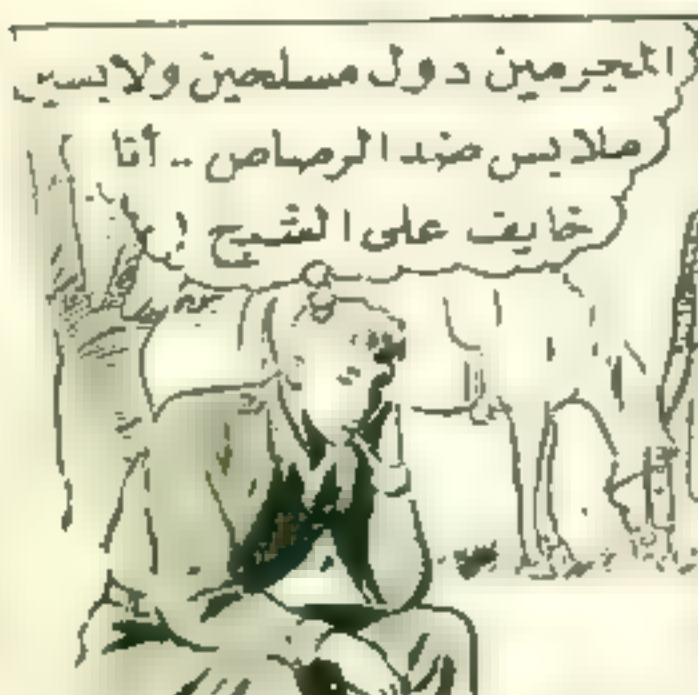 المجرمين دول مسلحين ولابسين
ملابس ضد الرصاص .. أنا
خايف على الشبح !